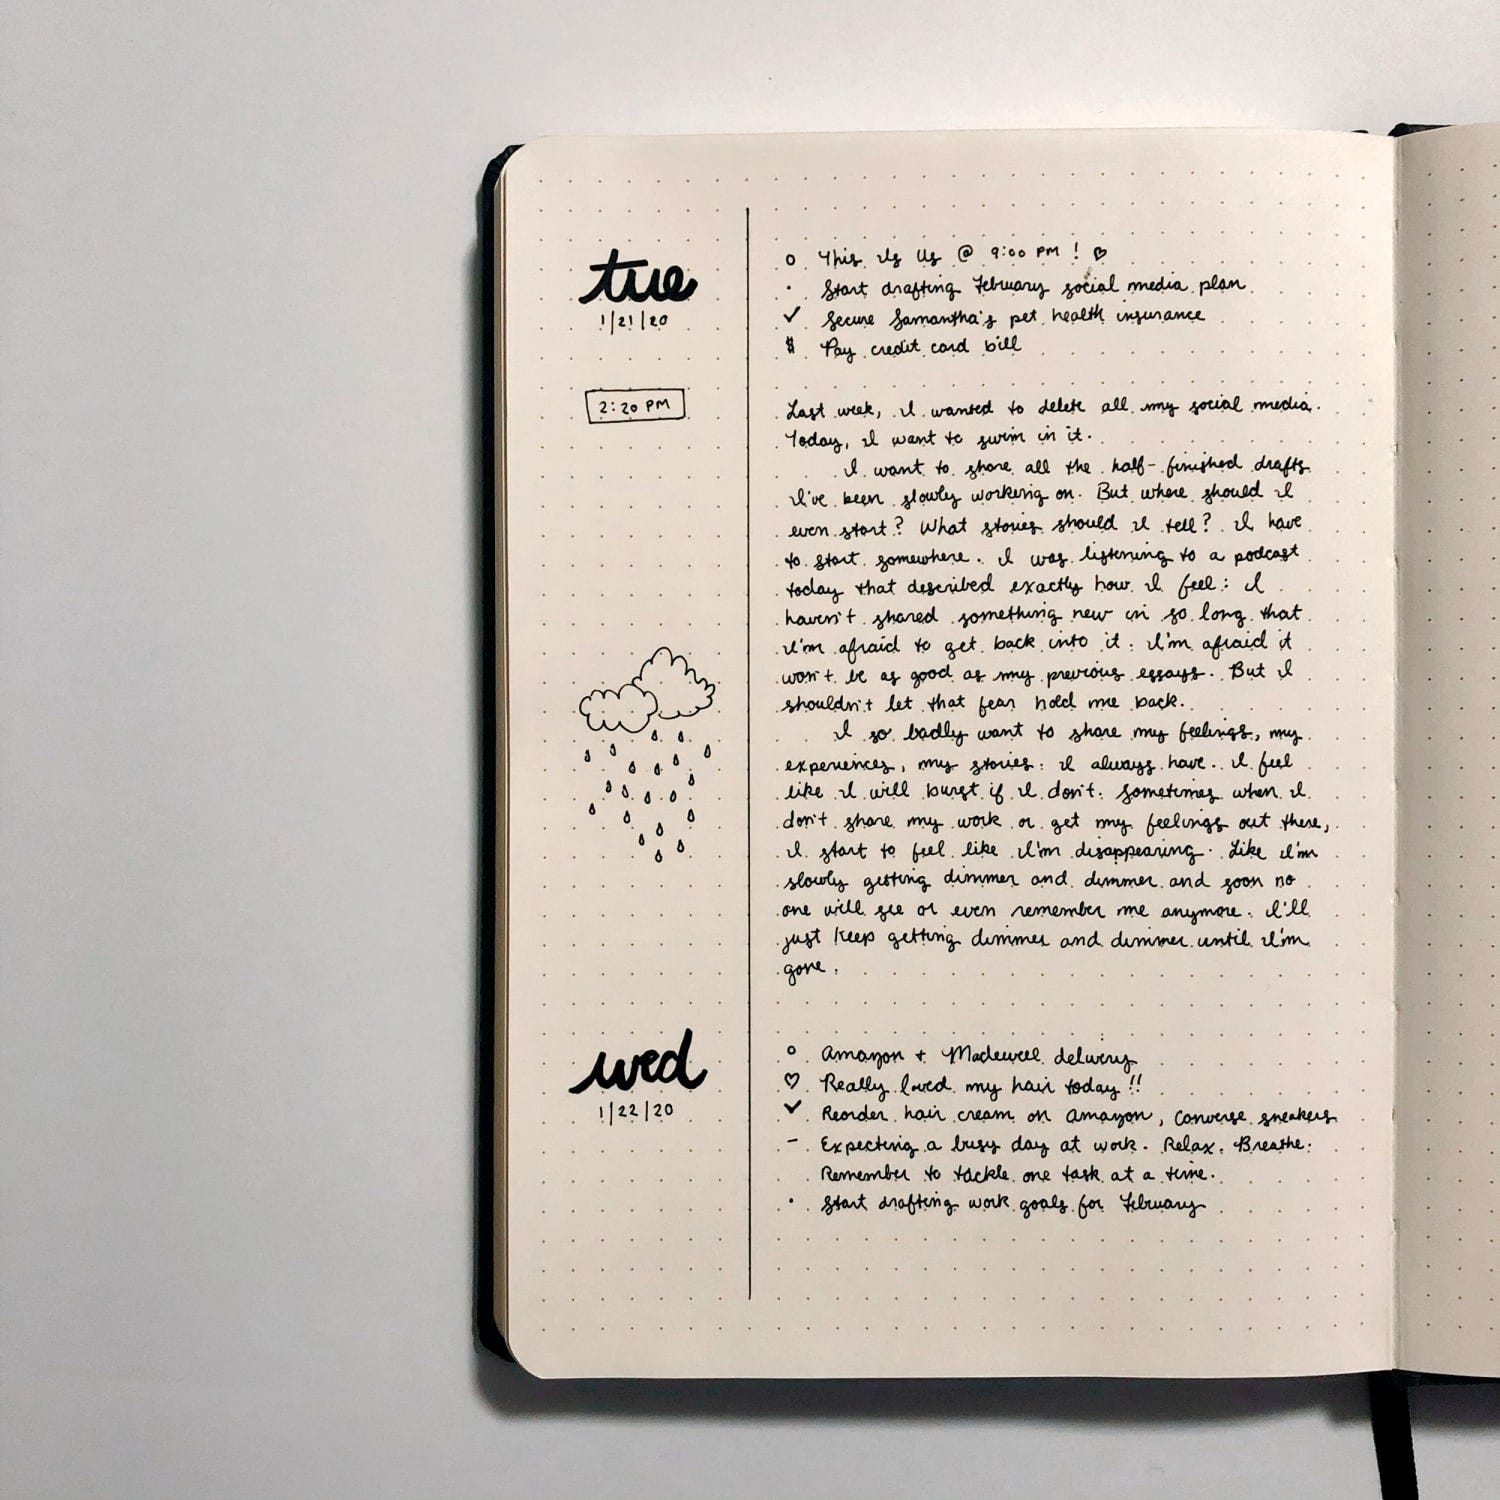 tue
1/21/20
o This Is Us @ 9:00 PM ! ♡
· Start drafting February social media plan
✓ Secure Samantha's pet health insurance
$ Pay credit card bill
2:20 PM
Last week, I wanted to delete all my social media.
Today, I want to swim in it.
I want to share all the half-finished drafts
I've been slowly working on. But where should I
even start? What stories should I tell? I have
to start somewhere. I was listening to a podcast
today that described exactly how I feel: I
haven't shared something new in so long that
I'm afraid to get back into it. I'm afraid it
won't be as good as my previous essays. But I
shouldn't let that fear hold me back.
I so badly want to share my feelings, my
experiences, my stories. I always have. I feel
like I will burst if I don't. Sometimes when I
don't share my work or get my feelings out there,
I start to feel like I'm disappearing. Like I'm
slowly getting dimmer and dimmer and soon no
one will see or even remember me anymore. I'll
just keep getting dimmer and dimmer until I'm
gone.
wed
1/22/20
o Amazon + Madewell delivery
♡ Really loved my hair today !!
✓ Reorder hair cream on Amazon, Converse sneakers
– Expecting a busy day at work. Relax. Breathe.
Remember to tackle one task at a time.
· Start drafting work goals for February